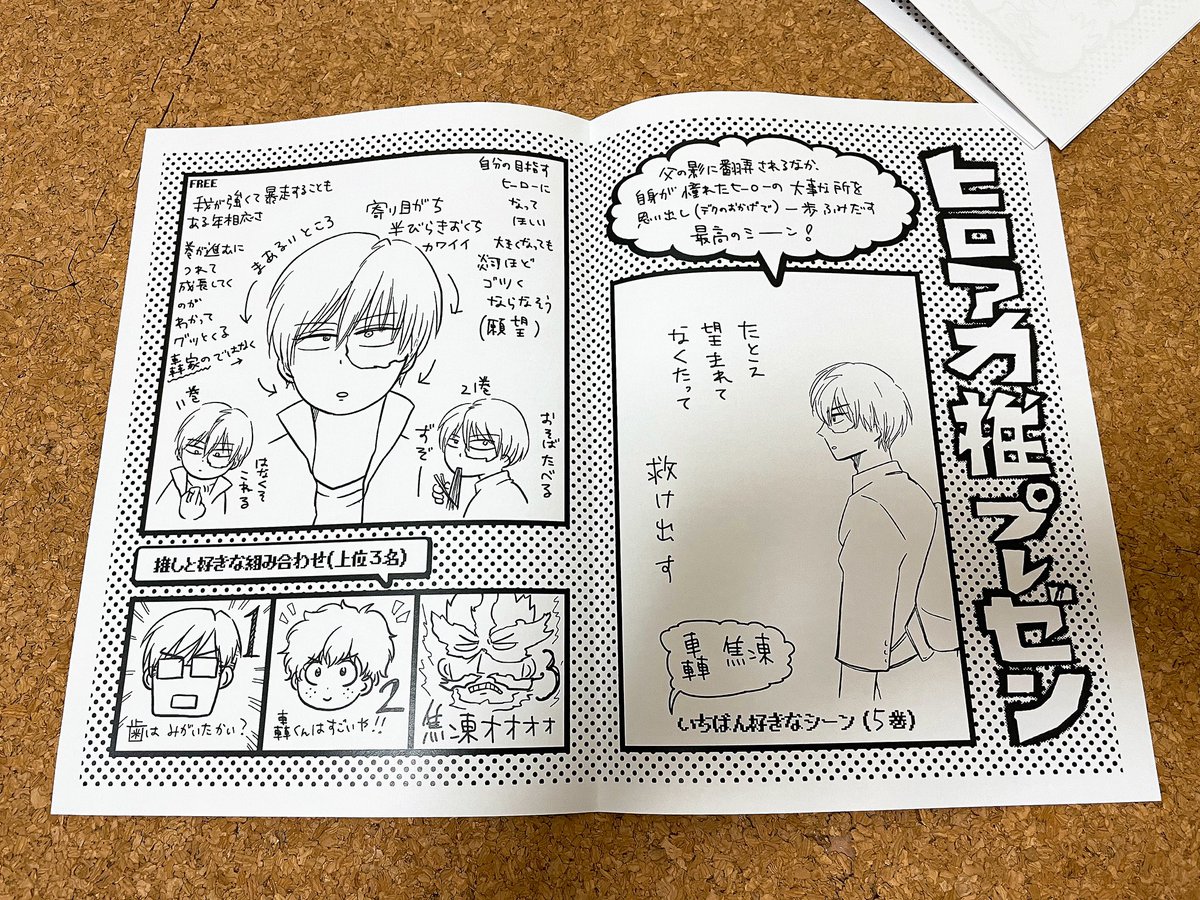 ヒロアカ推しプレゼン
父の影に翻弄されるなか、
自身が憧れたヒーローの大事な所を
思い出し(デクのおかげで)一歩ふみだす
最高のシーン!
たとえ
望まれて
なくたって
救け出す
轟 焦凍
いちばん好きなシーン(5巻)
FREE
我が強くて暴走することも
ある年相応さ
巻が進むに
つれて
成長してく
のが
わかって
グッとくる
轟家のではなく
まあるいところ
寄り目がち
半びらきおくち
カワイイ
自分の目指す
ヒーローに
なって
ほしい
大きくなっても
炎司ほど
ゴツく
ならなそう
(願望)
11巻
はなくそ
こねる
21巻
おそばたべる
ずぞー
推しと好きな組み合わせ(上位3名)
1
歯はみがいたかい?
2
轟くんはすごいや!!
3
焦凍オオオオ